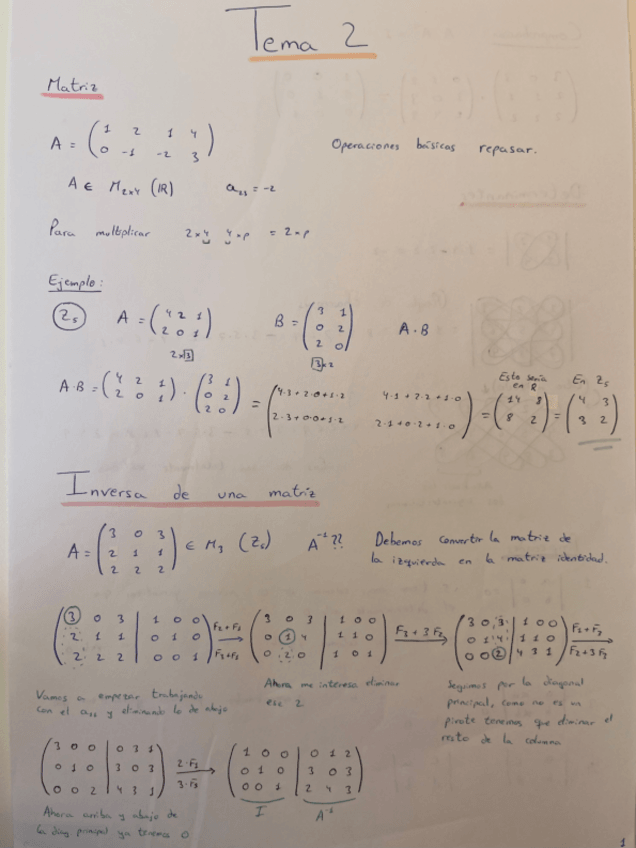 Tema 2
Matriz
A = ( 1 2 1 4
0 -1 -2 3 )
Operaciones básicas repasar.
A ∈ M2x4 (IR) a23 = -2
Para multiplicar 2x4 4xp = 2xp
Ejemplo:
Z5 A = ( 4 2 1
2 0 1 ) B = ( 3 1
0 2
2 0 ) A·B
2x3 3x2
A·B = ( 4 2 1
2 0 1 ) · ( 3 1
0 2
2 0 ) = ( 4·3+2·0+1·2 4·1+2·2+1·0
2·3+0·0+1·2 2·1+0·2+1·0 ) = ( 14 8
8 2 ) = ( 4 3
3 2 )
Esto sería
en R
En Z5
Inversa de una matriz
A = ( 3 0 3
2 1 1
2 2 2 ) ∈ M3 (Z5) A⁻¹ ??
Debemos convertir la matriz de
la izquierda en la matriz identidad.
( 3 0 3 | 1 0 0
2 1 1 | 0 1 0
2 2 2 | 0 0 1 ) F2+F1
F3+F1
( 3 0 3 | 1 0 0
0 1 4 | 1 1 0
0 2 0 | 1 0 1 ) F3+3F2
( 3 0 3 | 1 0 0
0 1 4 | 1 1 0
0 0 2 | 4 3 1 ) F1+F3
F2+3F3
Vamos a empezar trabajando
con el a11 y eliminando lo de abajo
Ahora me interesa eliminar
ese 2
Seguimos por la diagonal
principal, como no es un
pivote tenemos que eliminar el
resto de la columna
( 3 0 0 | 0 3 1
0 1 0 | 3 0 3
0 0 2 | 4 3 1 ) 2·F1
3·F3
( 1 0 0 | 0 1 2
0 1 0 | 3 0 3
0 0 1 | 2 4 3 )
I A⁻¹
Ahora arriba y abajo de
la diag principal ya tenemos 0
1